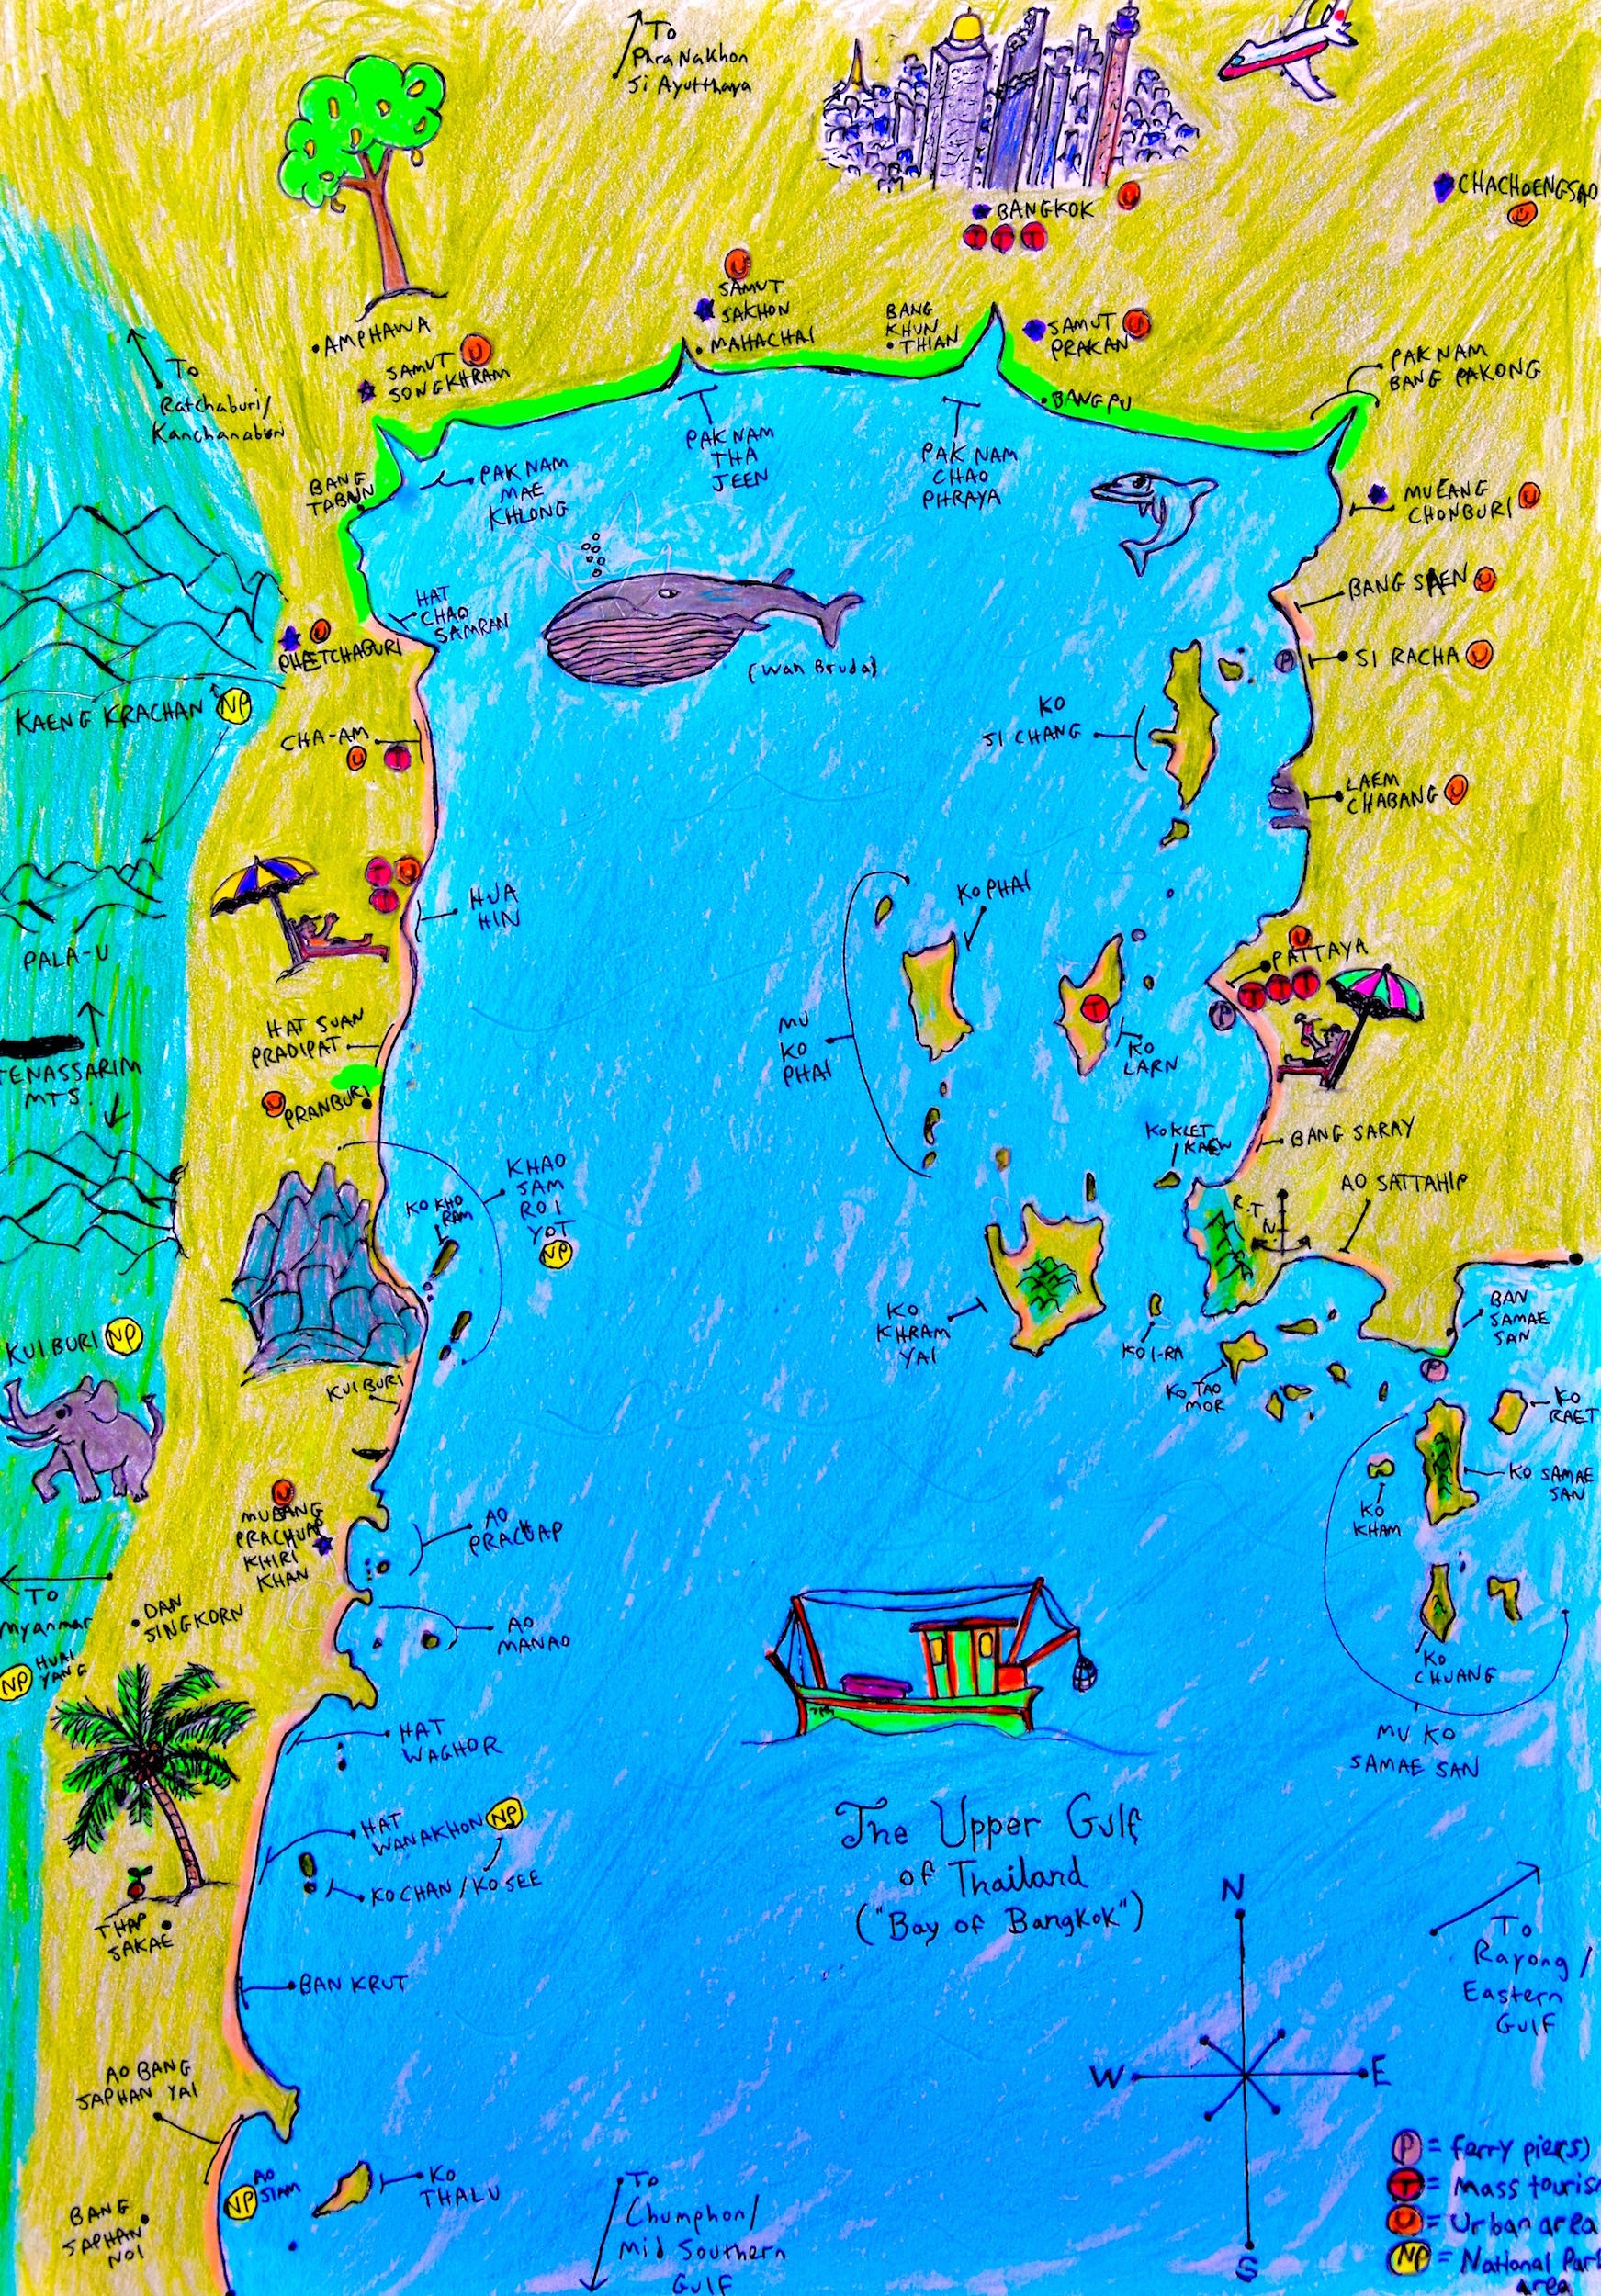 To
Phra Nakhon
Si Ayutthaya
BANGKOK
U
T T T
CHACHOENGSAO
U
U
SAMUT
SAKHON
MAHACHAI
BANG
KHUN
THIAN
SAMUT
PRAKAN
U
AMPHAWA
SAMUT
SONGKHRAM
U
To
Ratchaburi/
Kanchanaburi
PAK NAM
BANG PAKONG
BANGPU
PAK NAM
THA
JEEN
PAK NAM
CHAO
PHRAYA
PAK NAM
MAE
KHLONG
BANG
TABUN
MUEANG
CHONBURI
U
BANG SAEN
U
HAT
CHAO
SAMRAN
U
PHETCHABURI
(Wan Bruda)
P
SI RACHA
U
KAENG KRACHAN
NP
KO
SI CHANG
CHA-AM
U T
LAEM
CHABANG
U
T U
T
HUA
HIN
KO PHAI
PALA-U
U
PATTAYA
T T T
P
T
HAT SUAN
PRADIPAT
MU
KO
PHAI
KO
LARN
TENASSARIM
MTS.
U
PRANBURI
KO KLET
KAEW
BANG SARAY
KHAO
SAM
ROI
YOT
NP
KO KHO
RAM
AO SATTAHIP
R.T.
N.
KO
KHRAM
YAI
KO I-RA
BAN
SAMAE
SAN
KUIBURI
NP
KO TAO
MOR
P
KUIBURI
KO
RAET
KO SAMAE
SAN
KO
KHAM
U
MUEANG
PRACHUAP
KHIRI
KHAN
AO
PRACUAP
To
Myanmar
DAN
SINGKORN
AO
MANAO
NP
HUAI
YANG
KO
CHUANG
MU KO
SAMAE SAN
HAT
WAGHOR
The Upper Gulf
of Thailand
("Bay of Bangkok")
HAT
WANAKHON
NP
KO CHAN / KO SEE
THAP
SAKAE
N
To
Rayong/
Eastern
Gulf
BAN KRUT
W
E
AO BANG
SAPHAN YAI
S
KO
THALU
NP
AO
SIAM
BANG
SAPHAN
NOI
To
Chumphon/
Mid Southern
Gulf
P = ferry pier(s)
T = Mass touris
U = Urban area
NP = National Par
area